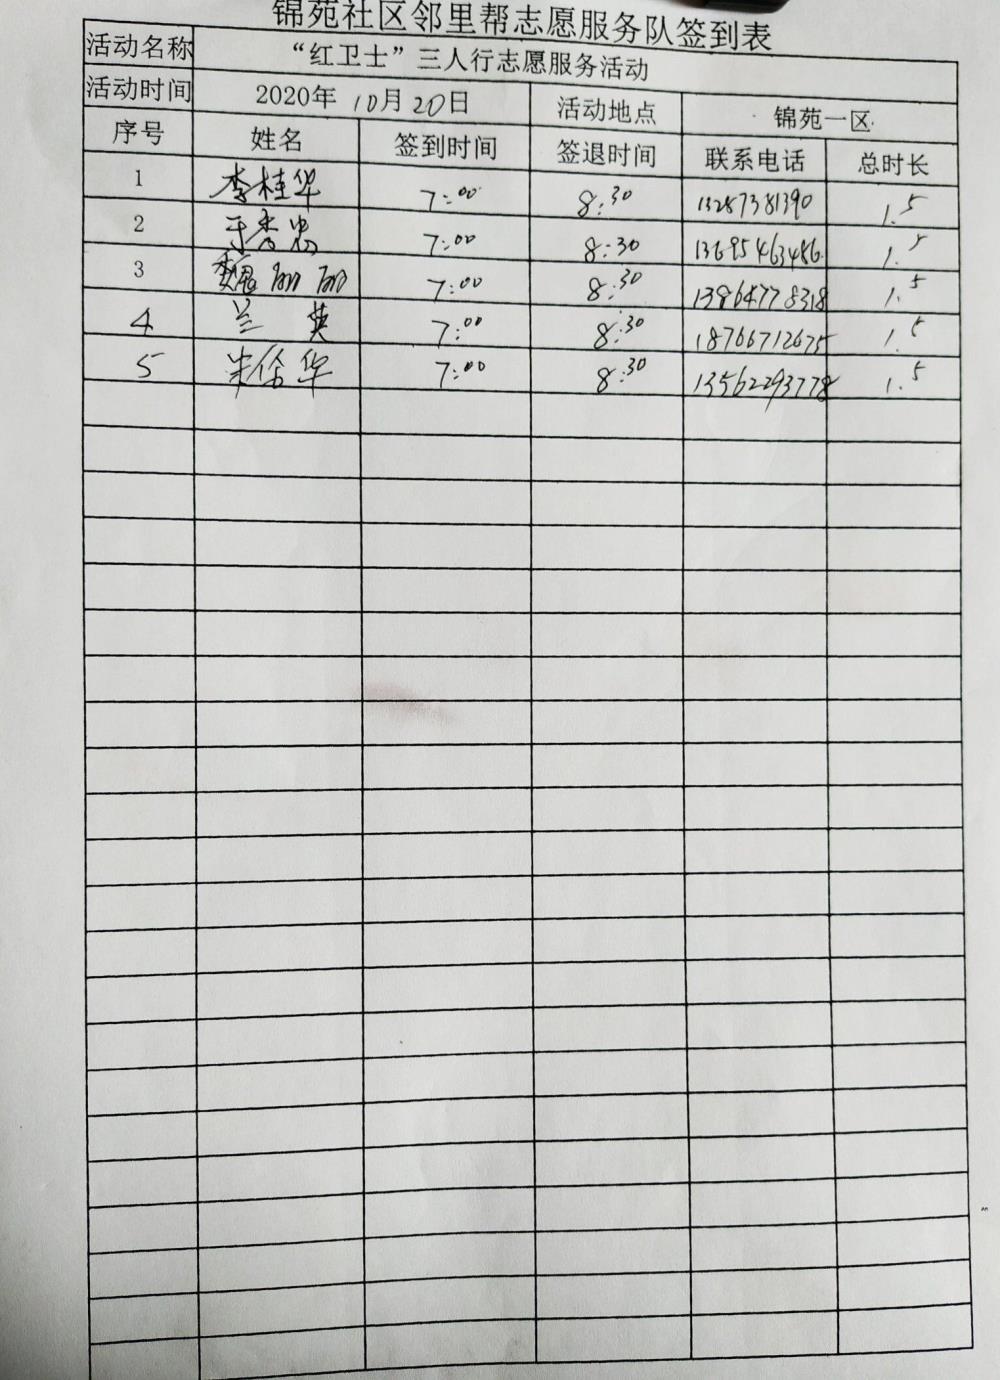 锦苑社区邻里帮志愿服务队签到表
活动名称 “红卫士”三人行志愿服务活动
活动时间 2020年10月20日 活动地点 锦苑一区
序号 姓名 签到时间 签退时间 联系电话 总时长
1 李桂华 7:00 8:30 13287381390 1.5
2 于秀忠 7:00 8:30 13695463486 1.5
3 魏丽丽 7:00 8:30 13964778318 1.5
4 兰英 7:00 8:30 18766712675 1.5
5 华 7:00 8:30 13562293778 1.5